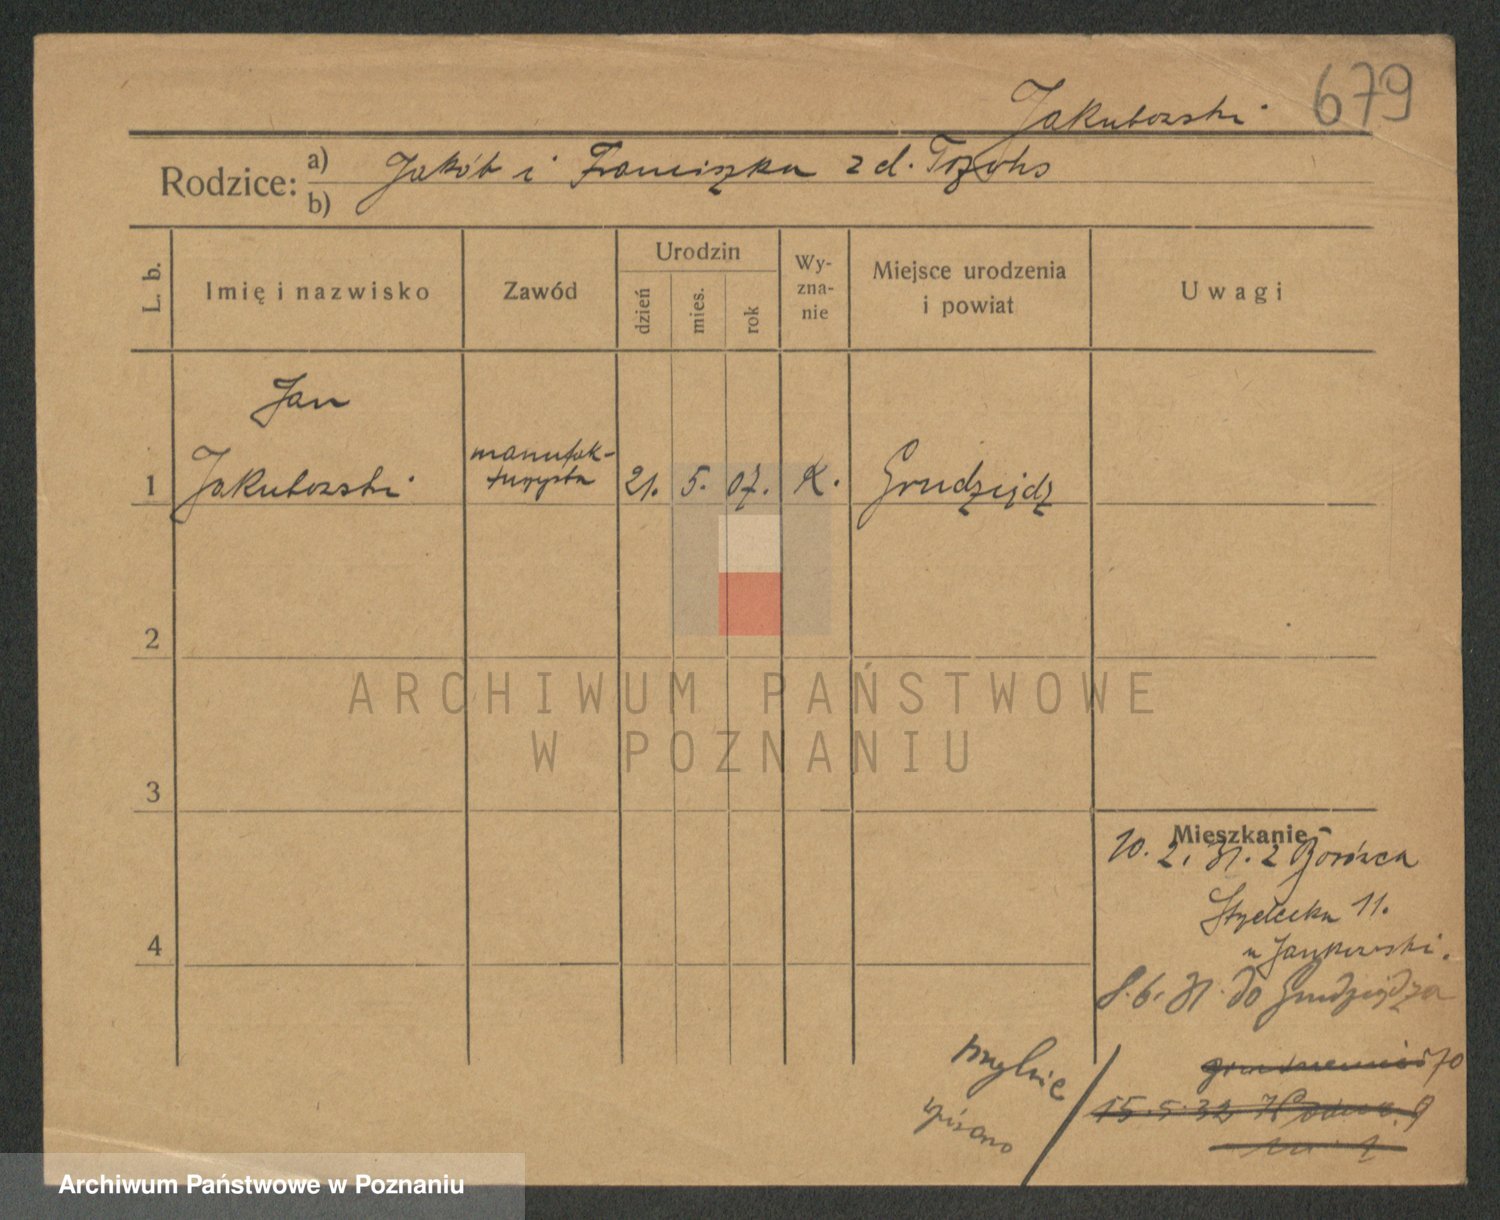 Jakubowski 679
Rodzice: a) Jakób i Franciszka z d.
b)
L. b. Imię i nazwisko Zawód Urodzin Wy-zna-nie Miejsce urodzenia i powiat Uwagi
dzień mies. rok
Jan
1 Jakubowski manufak-turzysta 21. 5. 07. K. Grudziądz
2
ARCHIWUM PAŃSTWOWE
W POZNANIU
3
Mieszkanie
10. 2. 31. z
11.
4
u Jankowski.
8. 6. 31. do Grudziądza
mylnie
wpisano
15. 5. 32
Archiwum Państwowe w Poznaniu